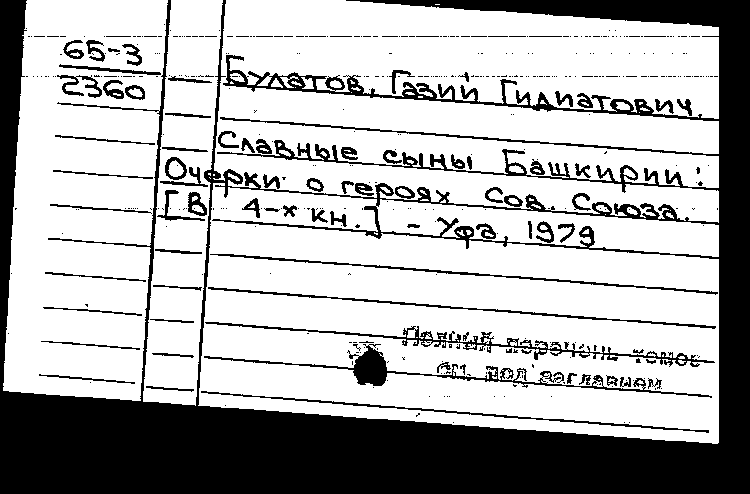 65-3
2360
Булатов, Газий Гидиатович.
Славные сыны Башкирии:
Очерки о героях Сов. Союза.
[В 4-х кн.] - Уфа, 1979.
Полный перечень томов
см. под заглавием